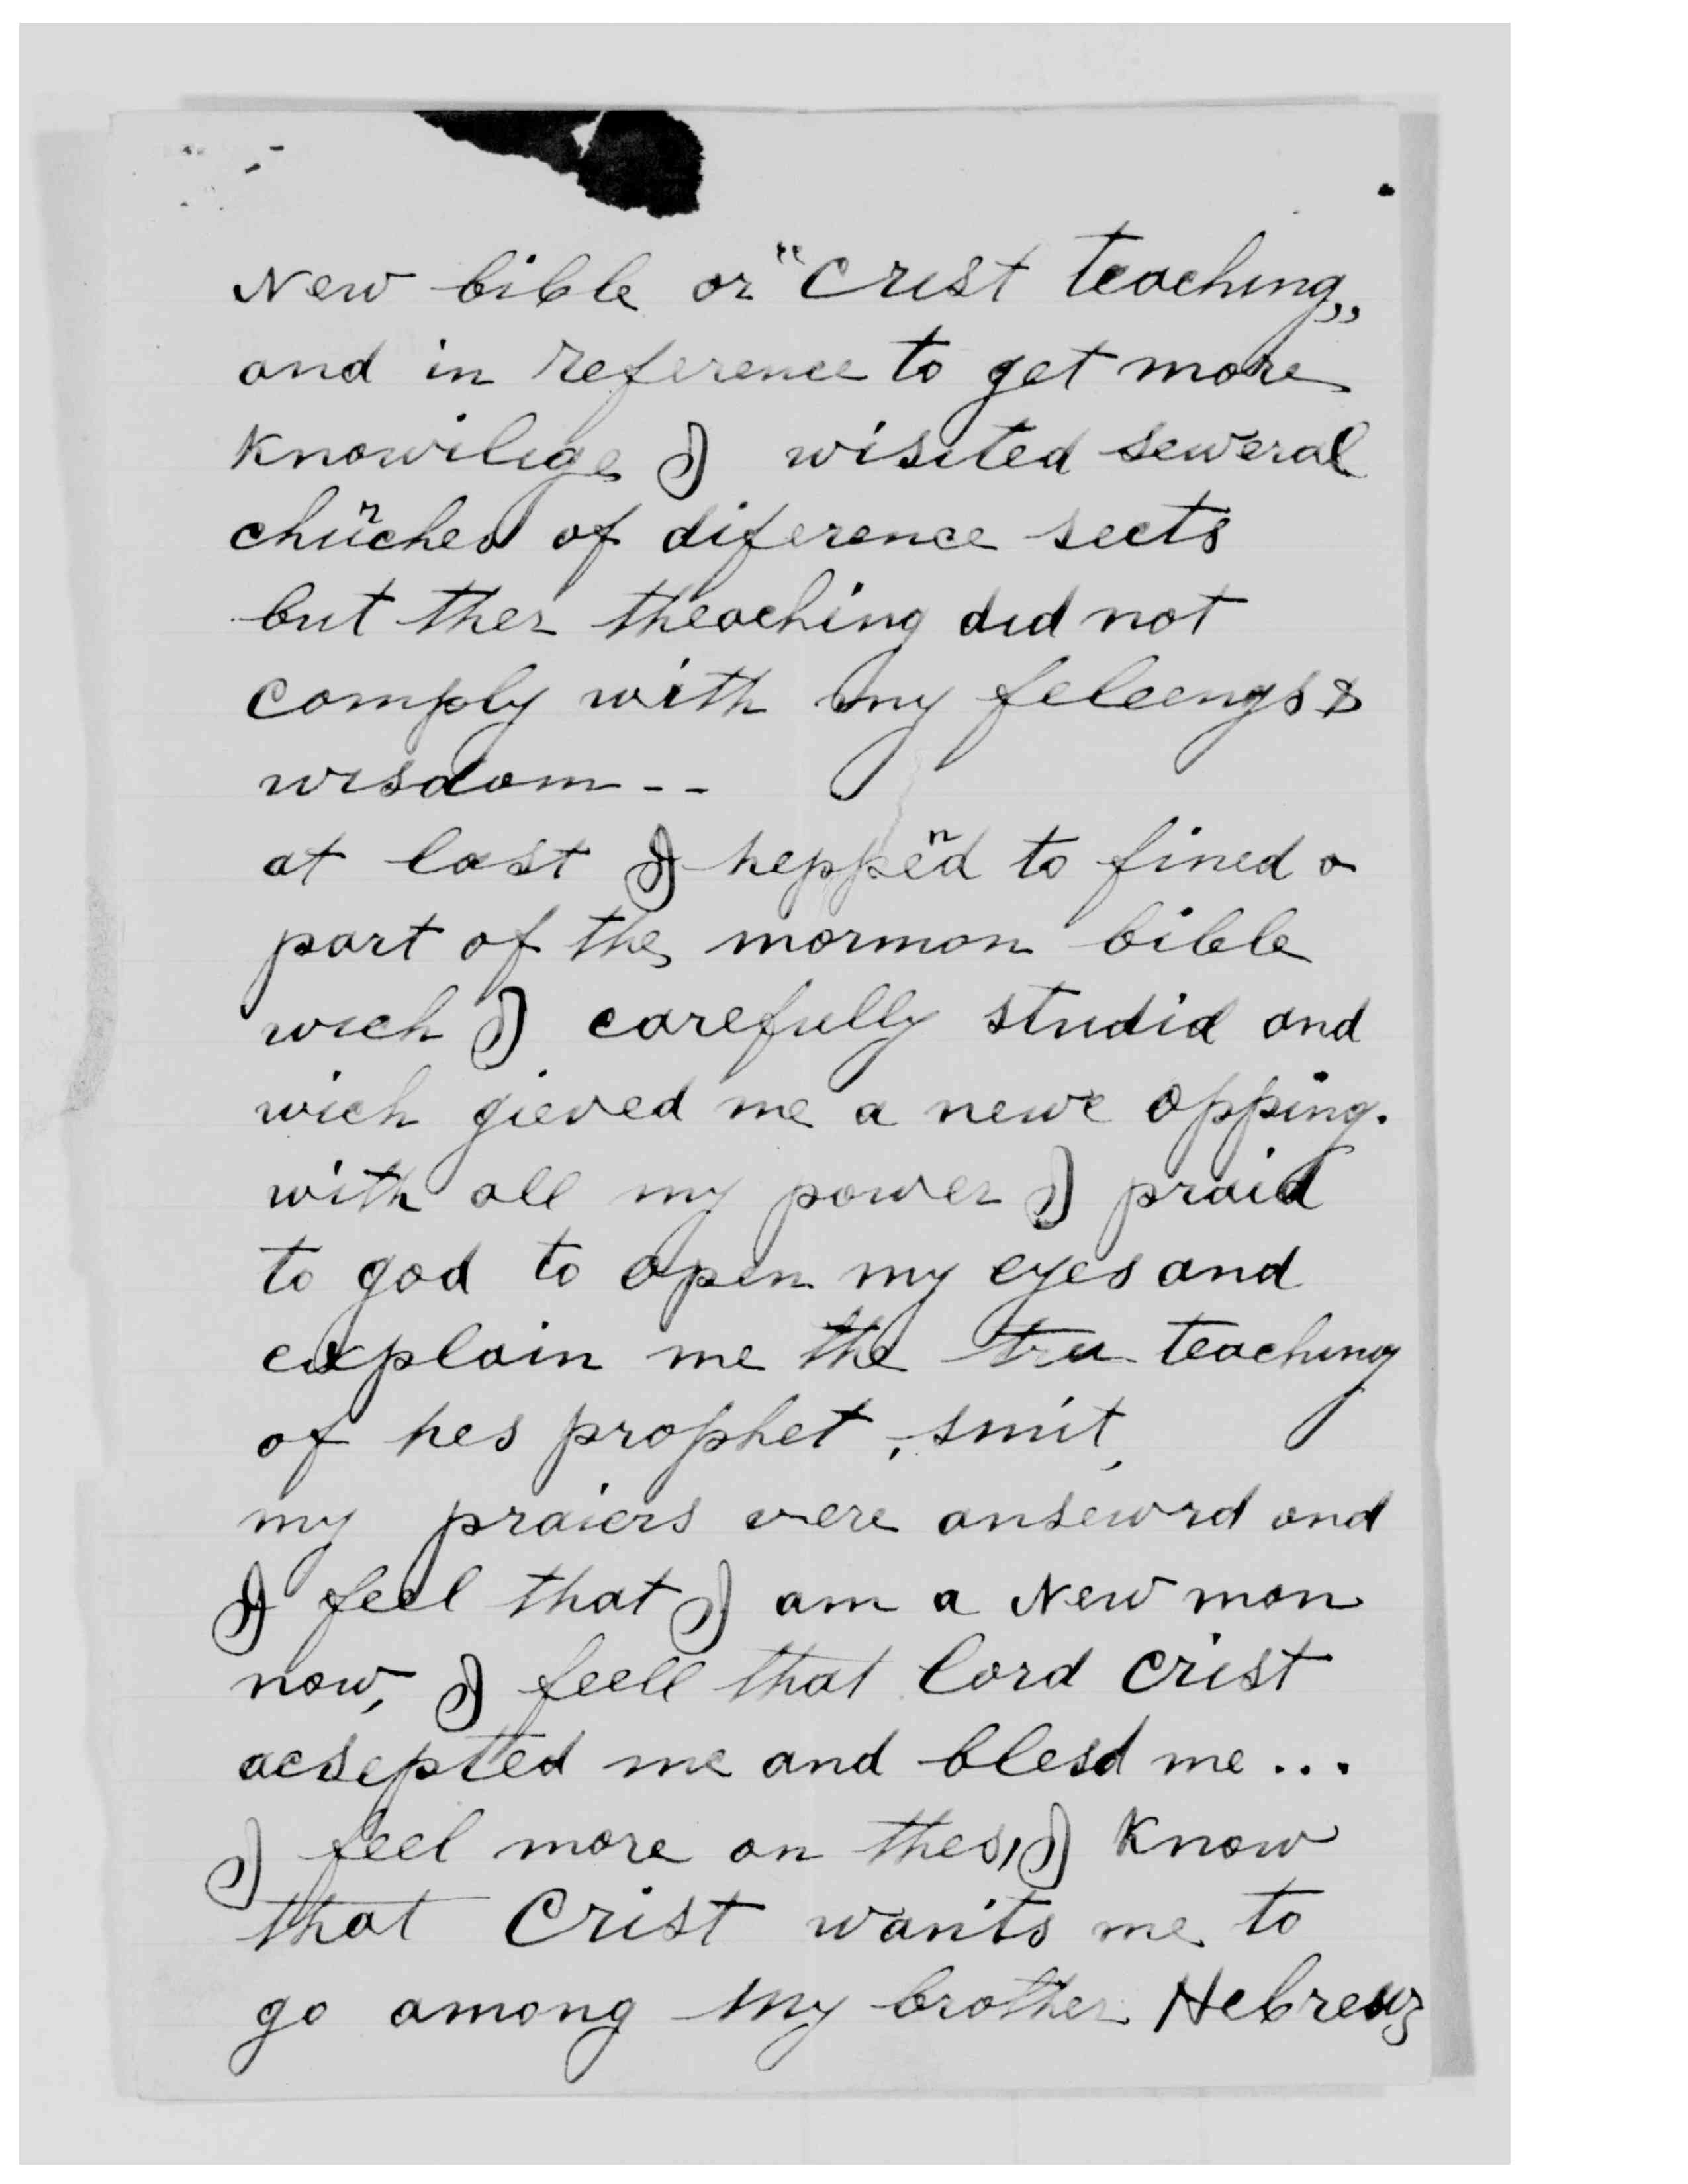 New bible or "Crist teaching,,
and in reference to get more
knowilige I wisited seweral
chuches of diference sects
but ther theaching did not
comply with my feleengs &
wisdom --
at last I heppend to fined a
part of the mormon bible
wich I carefully studid and
wich gieved me a newe opping.
with all my power I praid
to god to open my eyes and
explain me the tru teaching
of hes prophet, smit,
my praiers were ansewrd and
I feel that I am a New man
now, I feell that lord Crist
acsepted me and blesd me ...
I feel more on thes, I know
that Crist wants me to
go among my brother Hebrews